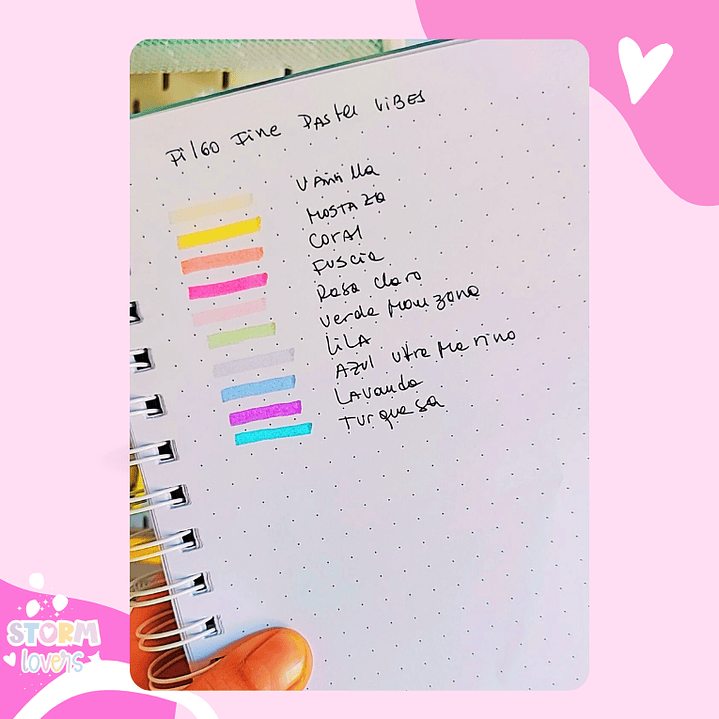 Filgo Fine Pastel VIBES
Vainilla
Mostaza
Coral
Fuscia
Rosa claro
Verde Manzana
Lila
Azul utra Marino
Lavanda
Turquesa
STORM
lovers